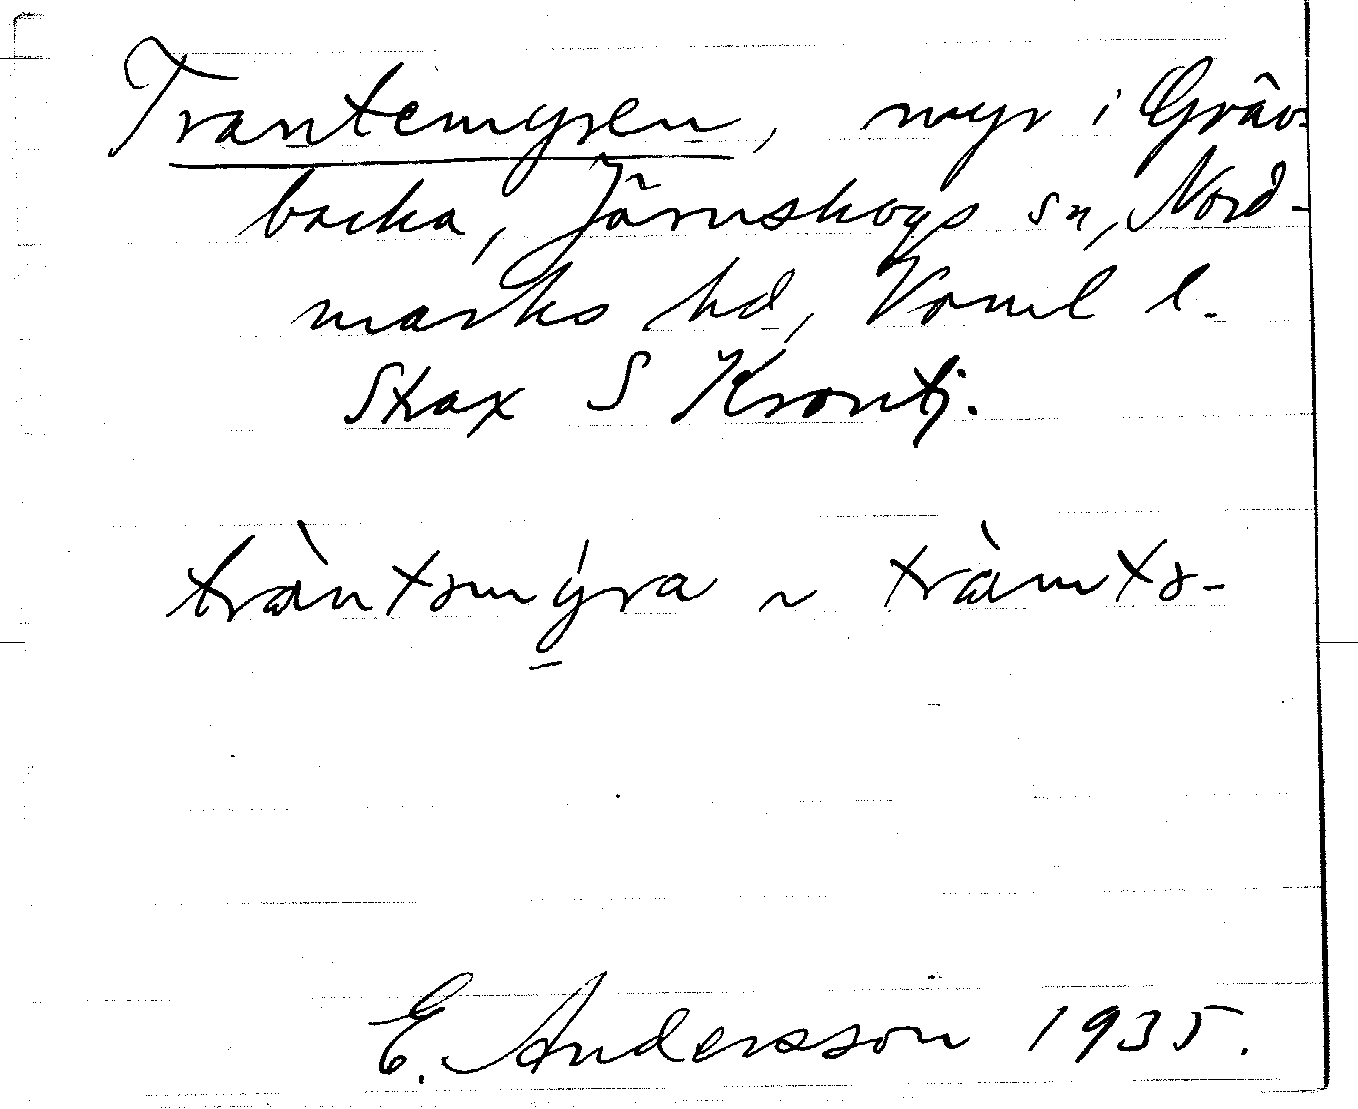 Trantemyren, myr i Gräv-
backa, Järnskogs sn, Nord-
marks hd, Vrml l.
Strax S Krontj.
tràntəmýra ~ tràmtə-
E. Andersson 1935.